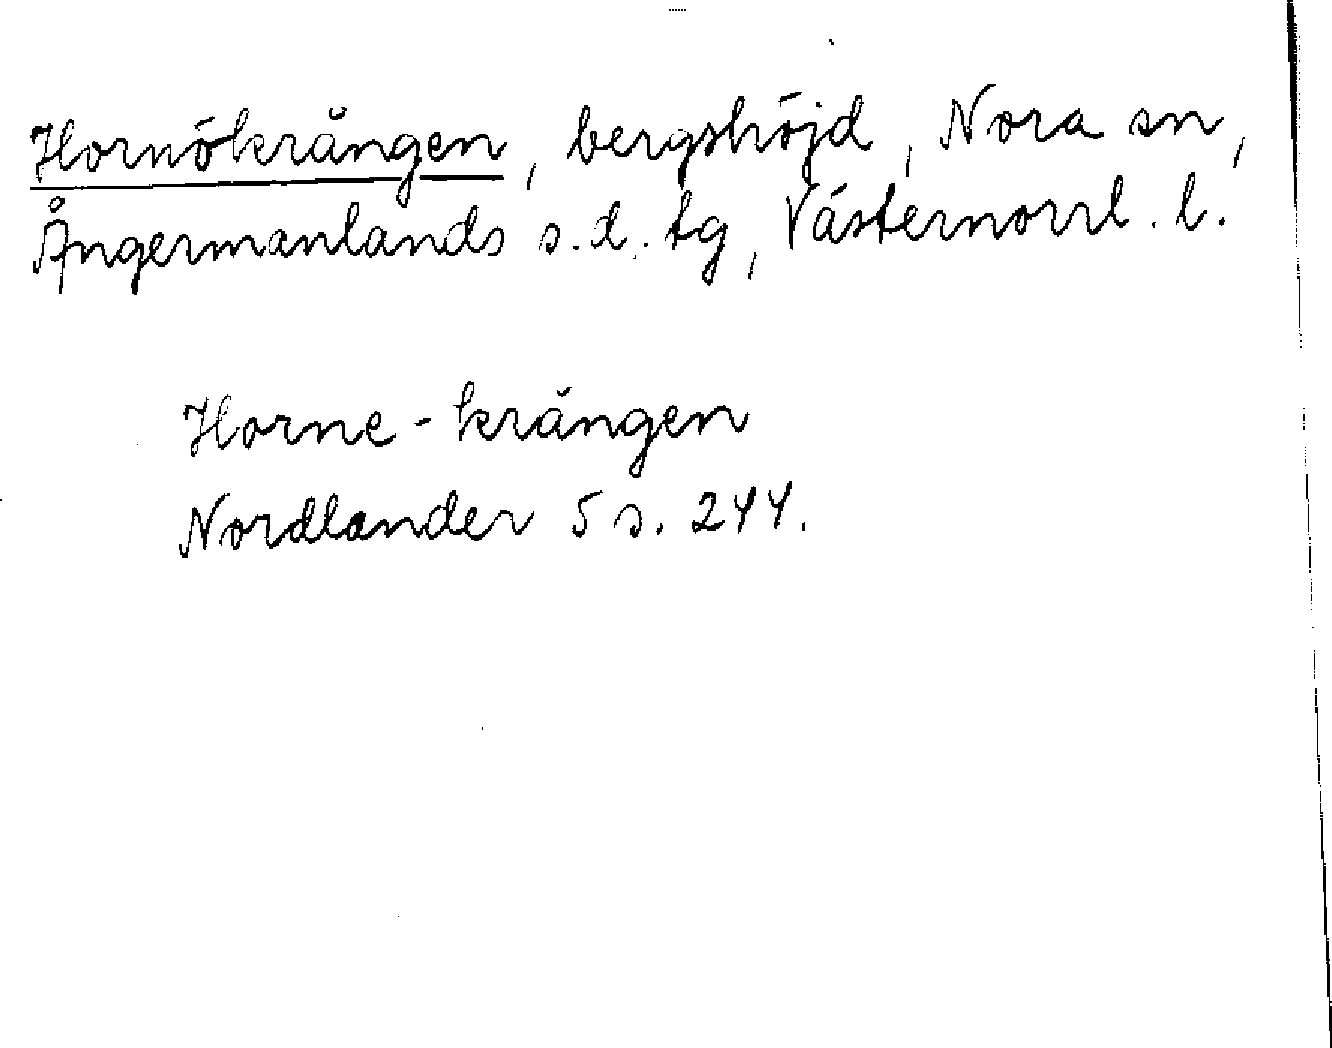 Hornökrången, bergshöjd, Nora sn,
Ångermanlands s.d. tg, Västernorrl. l.
Horne-krången
Nordlander 5 s. 244.